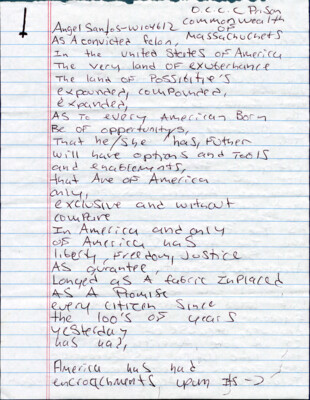 O.C.C.C. Prison
Commonwealth
OF
Massachuchets
Angel Santos-W104612
AS A convicted felon,
In the United States OF America
The very land OF exuberhance
The land OF Possibilte's
expounded, compounded,
expanded,
AS TO every American Born
Be OF opportunitys,
That he/she has, Futher
will have options and Tools
and enablements,
that Are OF America
only,
exclusive and without
compare
In America and only
OF America has
liberty, Freedom, Justice
AS gurantee,
Longed as A fabric Inplaced
AS A Promise
every citizen Since
the 100's OF years
yesterday
has had,
America has had
encroachments upon Its ->